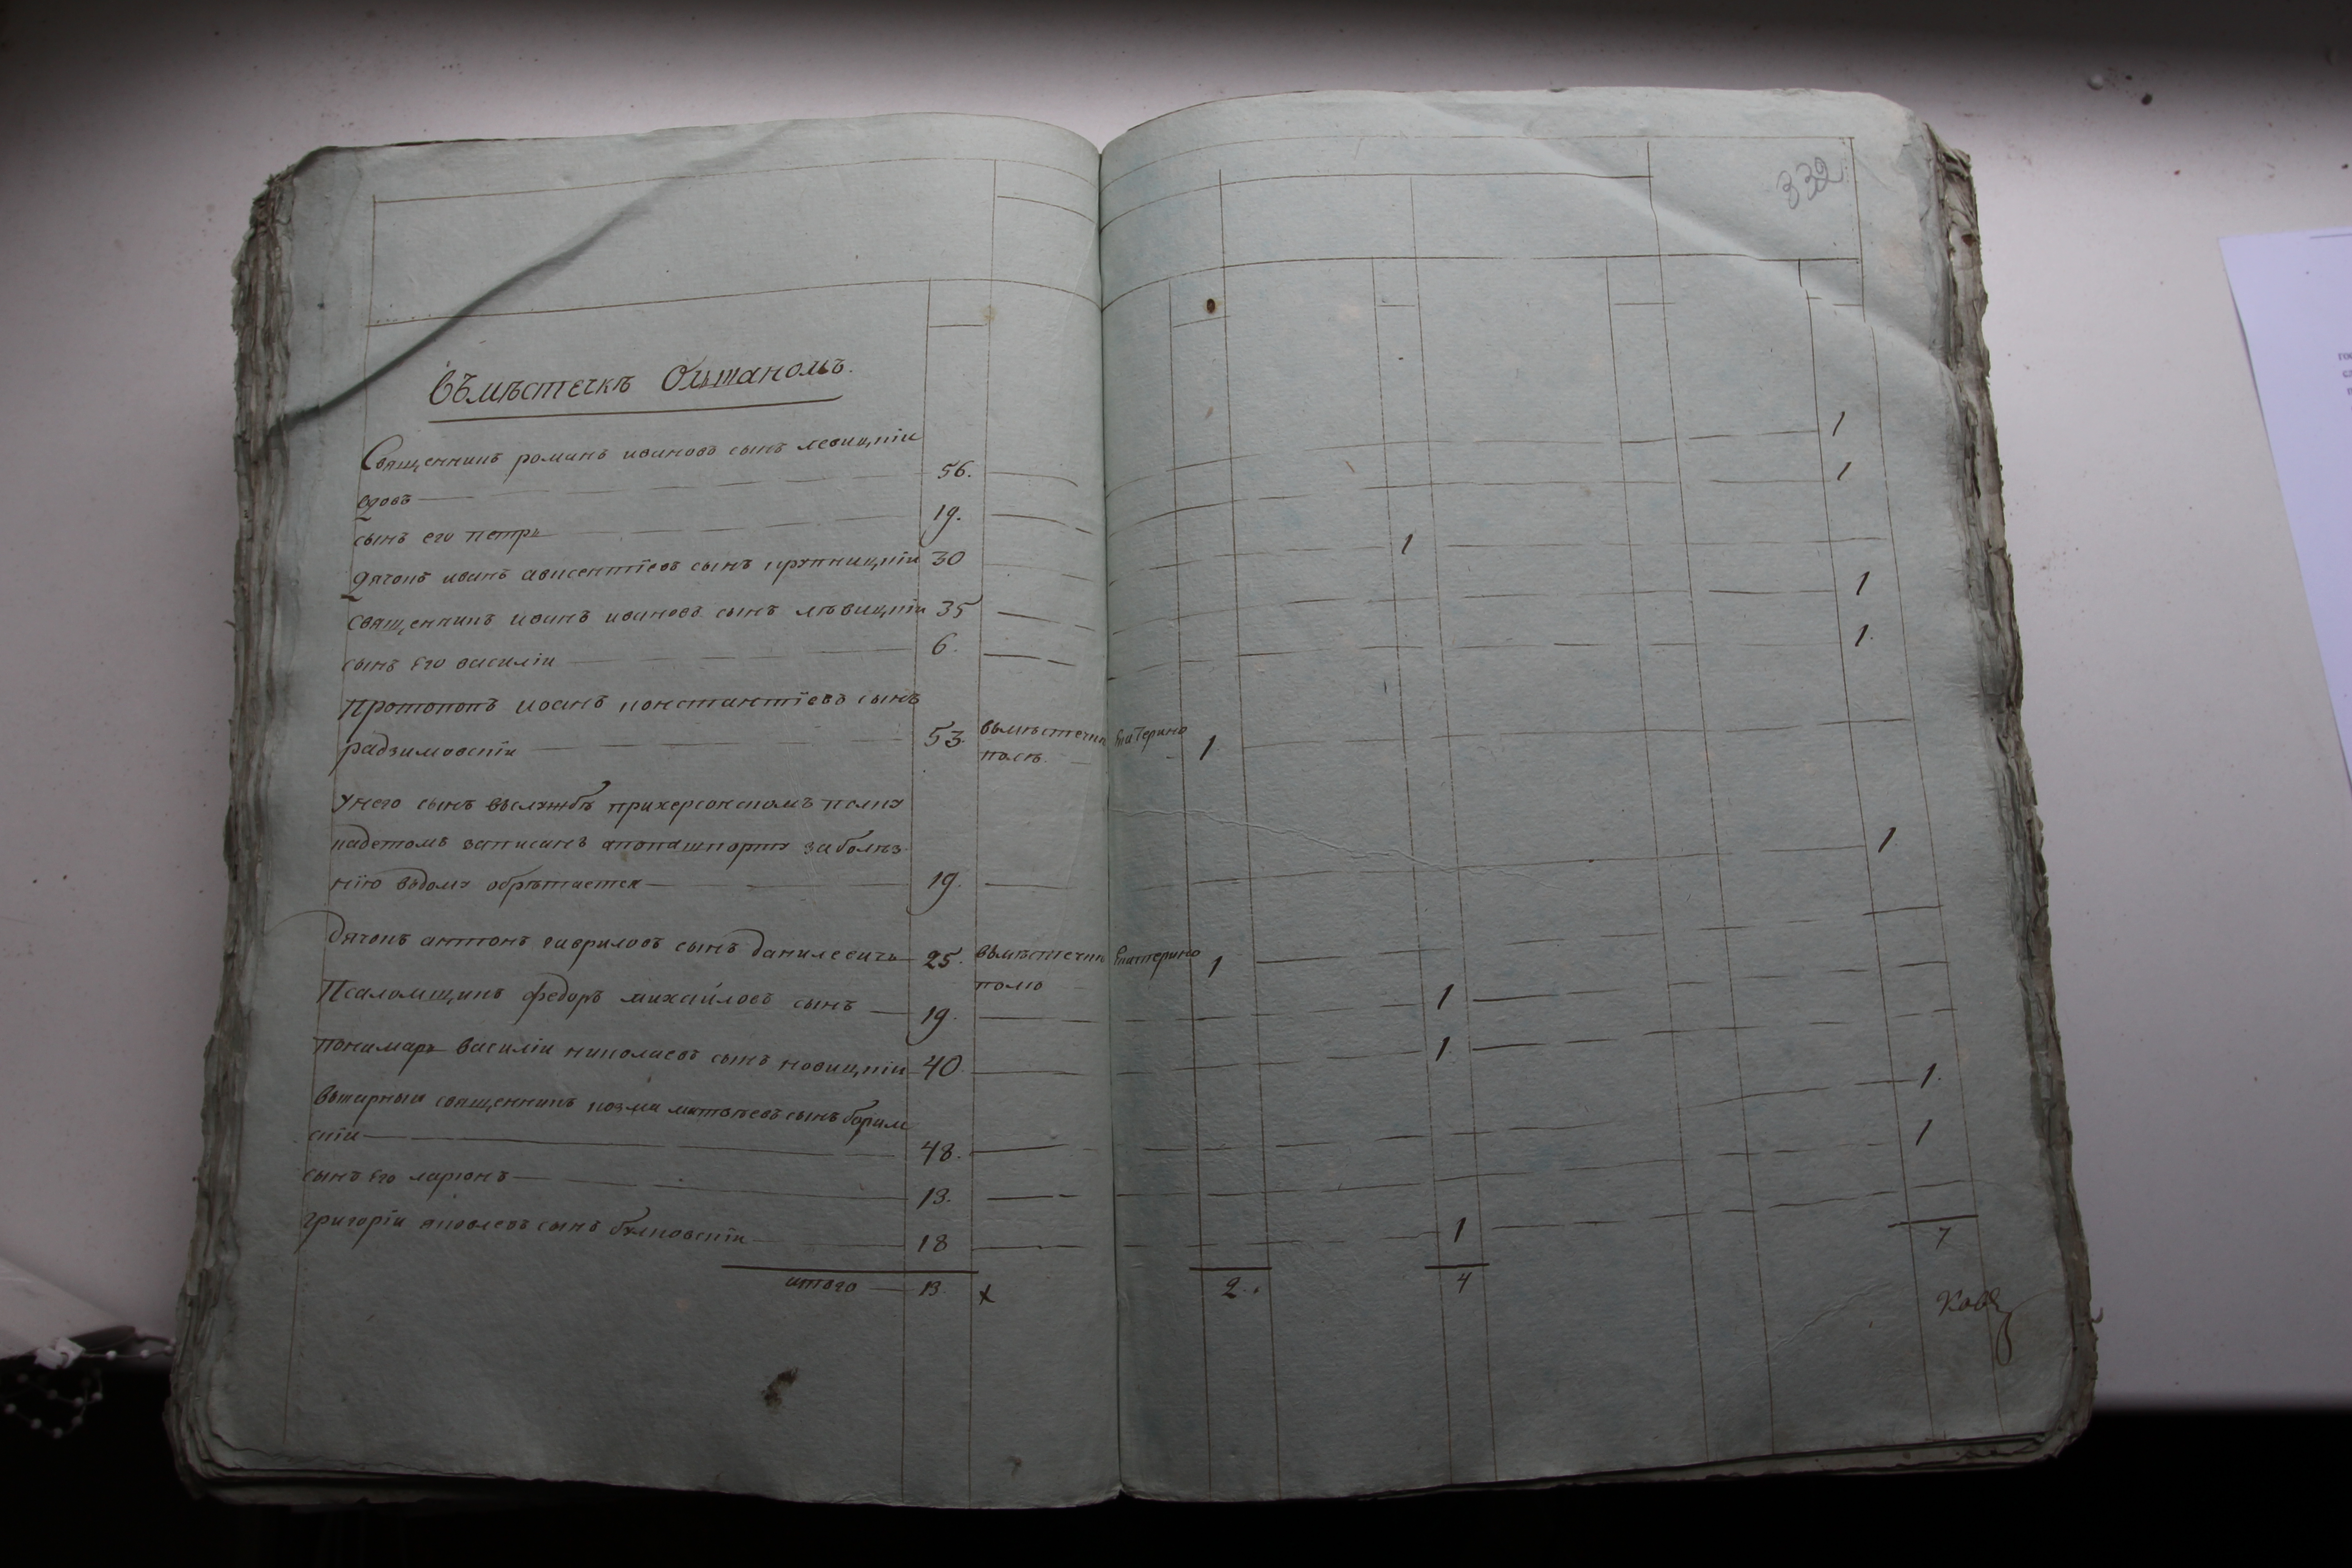 332
Въмѣстечкѣ Ольшаномъ.
Священникъ романъ ивановъ сынъ левицкіи
вдовъ — 56. — 1
сынъ его петръ — 19. — 1
дячокъ иванъ авксентіевъ сынъ крупницкіи 30 — 1
священникъ иоанъ ивановъ сынъ лѣвицкіи 35 — 1
сынъ его василіи — 6. — 1.
протопопъ иоанъ константіевъ сынъ
радзимовскіи — 53. вмѣстечки Екатерино
полѣ. — 1
унего сынъ вслужбѣ прихерсонскомъ полку
кадетомъ записанъ апопашпорту заболѣз
нію вдому обрѣтается — 19. — 1
дячокъ антонъ гавриловъ сынъ данилевичъ — 25. вмѣстечки Екатерино
полю — 1
Псаломщикъ федоръ михайловъ сынъ — 19. — 1
пономаръ василіи николаевъ сынъ новицкіи 40 — 1.
вькарныи священникъ козма матвѣевъ сынъ
скіи — 48. — 1.
сынъ его ларіонъ — 13. — 1
григоріи яковлевъ сынъ булковскіи — 18 — 1
итого — 13. х 2. 4 7